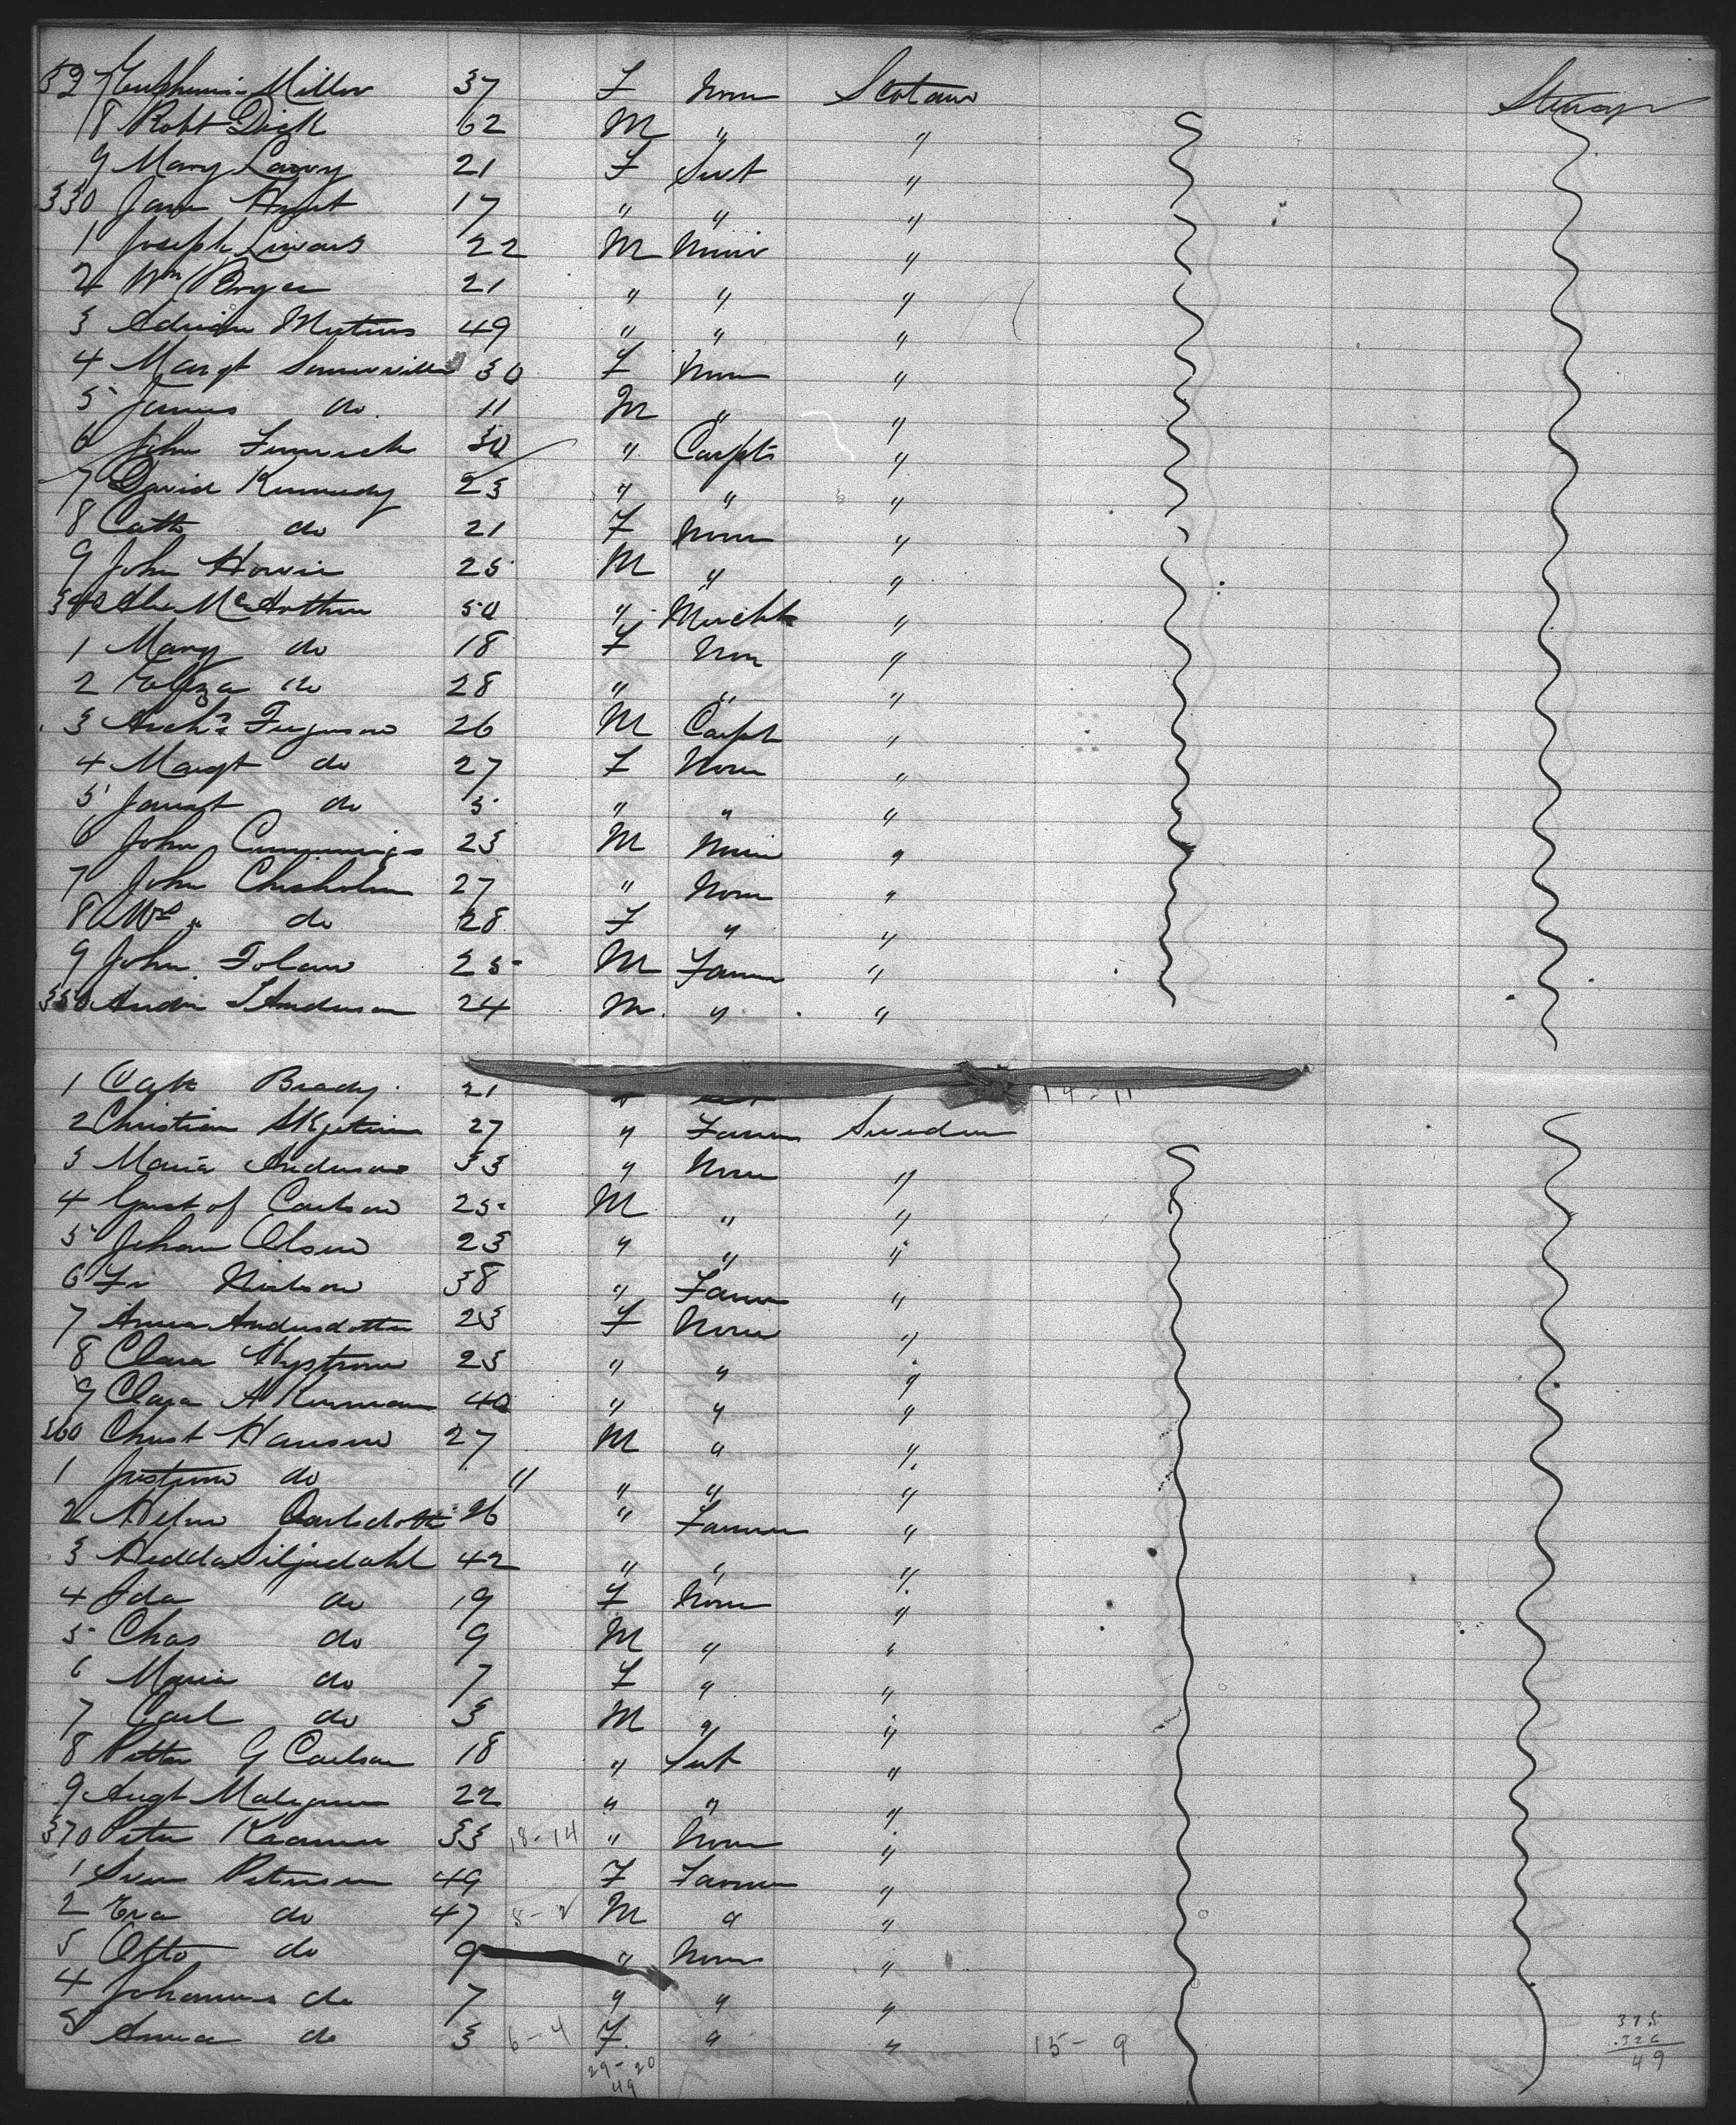 327 Euphemia Miller 37 F None Scotland Steerage
8 Robt Dick 62 M " "
9 Mary Lavry 21 F Servt "
330 Jane Hunt 17 " " "
1 Joseph 22 M Miner "
2 Wm Boyce 21 " " "
3 49 " " "
4 Margt Somerville 30 F None "
5 James do 11 M " "
6 John Fenwick 30 " Carptr "
7 David Kennedy 23 " " "
8 Cath do 21 F None "
9 John Howie 25 M " "
340 Alex McArthur 50 " Mercht "
1 Mary do 18 F Non "
2 Eliza do 28 " " "
3 Archd Ferguson 26 M Carpt "
4 Margt do 27 F None "
5 Janet do 5 " " "
6 John Cummings 23 M Miner "
7 John Chisholm 27 " None "
8 Mrs " do 28 F " "
9 John Tolan 25 M Farmer "
350 Andr Anderson 24 M " "
1 Cath Brady 21 14-11
2 Christian 27 " Farmer Sweden
3 Maria Anderson 33 " None "
4 Gustof Carlson 25 M " "
5 Johan Olsen 23 " " "
6 Fr Nielson 38 " Farmer "
7 Anna Andersdotter 23 F None "
8 Clara Nystrom 23 " " "
9 Clara A 40 " " "
360 Christ Hansen 27 M " "
1 do 11 " " "
2 Carlsdotter 26 " Farmer "
3 Hedda Siljedahl 42 " " "
4 Ida do 19 F None "
5 Chas do 9 M " "
6 Maria do 7 F " "
7 Carl do 3 M " "
8 Petter G Carlson 18 " Servt "
9 Augt Malmgren 22 " " "
370 Peter 33 18-14 " None "
1 Sven Peterson 49 F Farmer "
2 Eva do 47 8-2 M " "
3 Otto do 9 " None "
4 Johannes do 7 " " "
5 Anna do 3 6-4 F " " 15-9
29-20
49
375
326
49